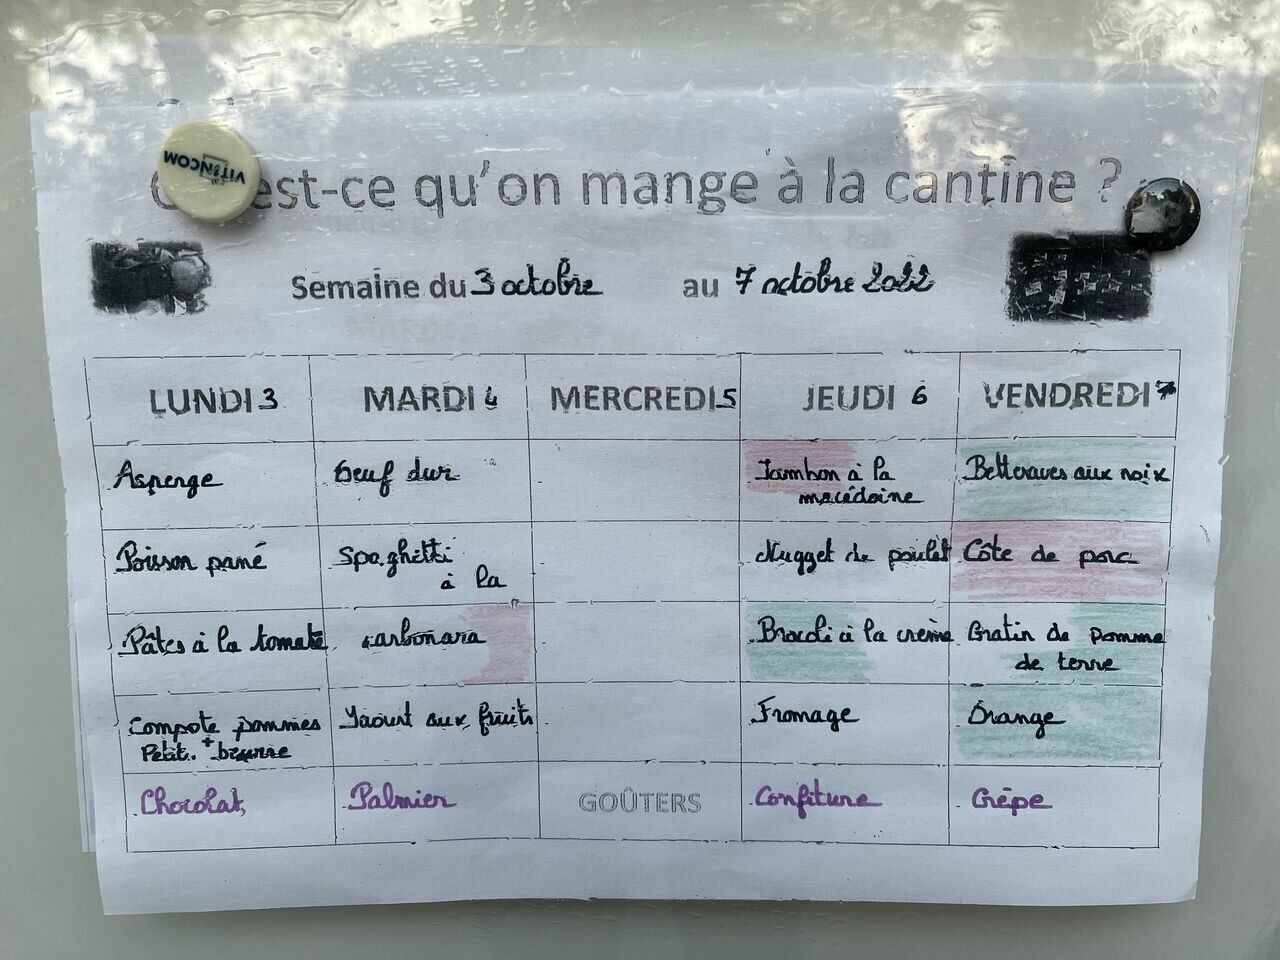 est-ce qu'on mange à la cantine ?
VIT@NCOM
Semaine du 3 octobre au 7 octobre 2022
LUNDI 3 MARDI 4 MERCREDI 5 JEUDI 6 VENDREDI 7
Asperge Oeuf dur Jambon à la Betteraves aux noix
macédoine
Poisson pané Spaghetti Nugget de poulet Côte de porc
à la
Pâtes à la tomate carbonara Brocoli à la crème Gratin de pomme
de terre
Compote pommes Yaourt aux fruits Fromage Orange
+
Petit beurre
Chocolat Palmier GOÛTERS Confiture Crêpe